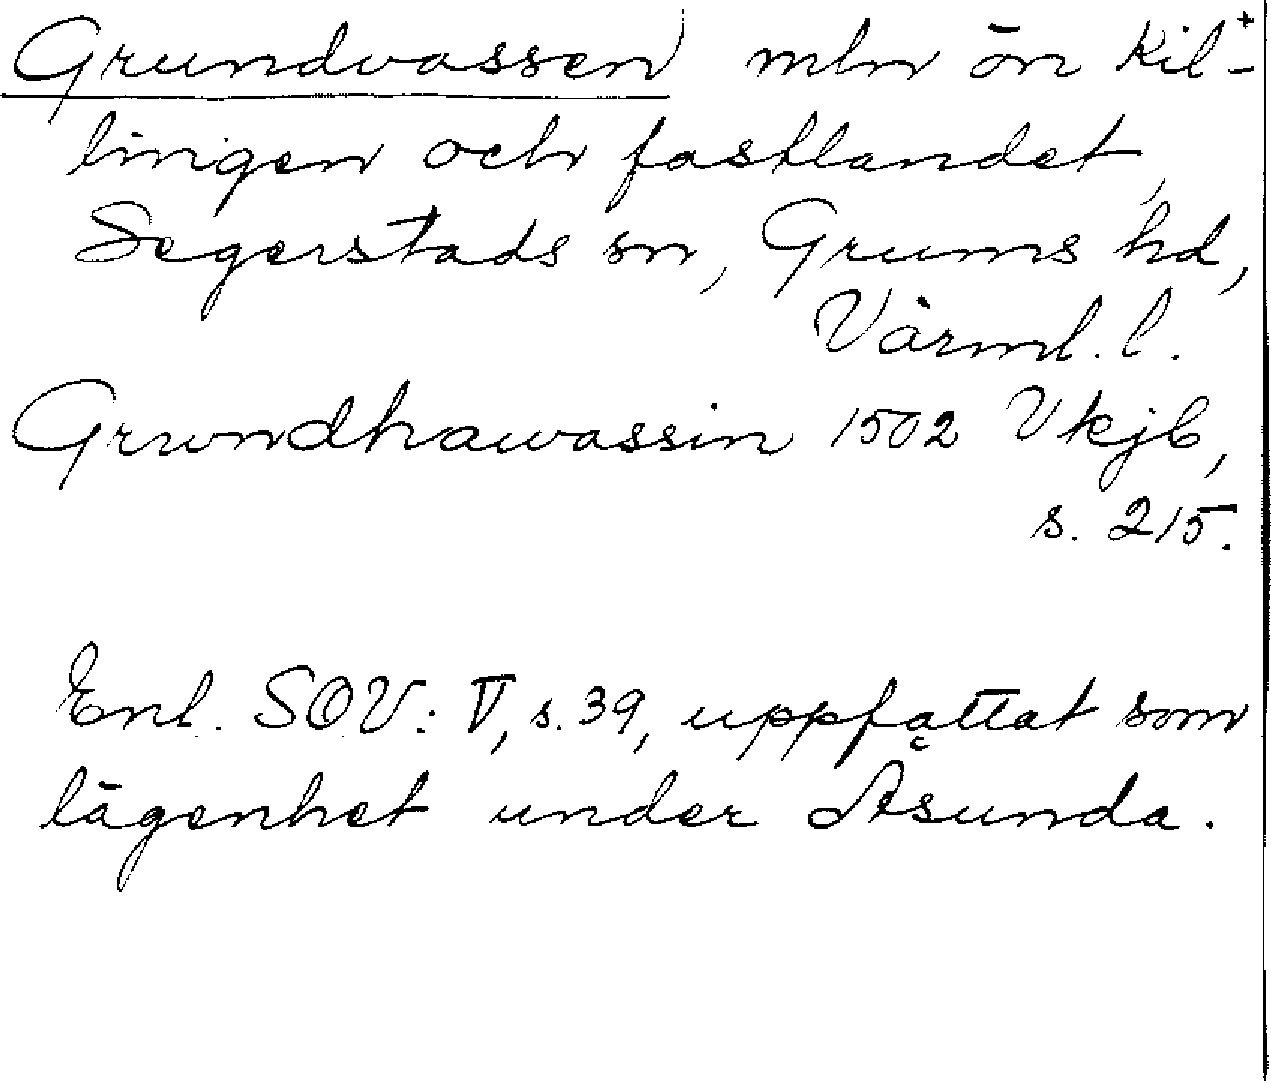 Grundvassen mln ön Kil-+
lingen och fastlandet,
Segerstads sn, Grums hd,
Värml. l.
Grwndhawassin 1502 Vkjb,
s. 215.
Enl. SOV: V, s. 39, uppfattat som
lägenhet under Åsunda.